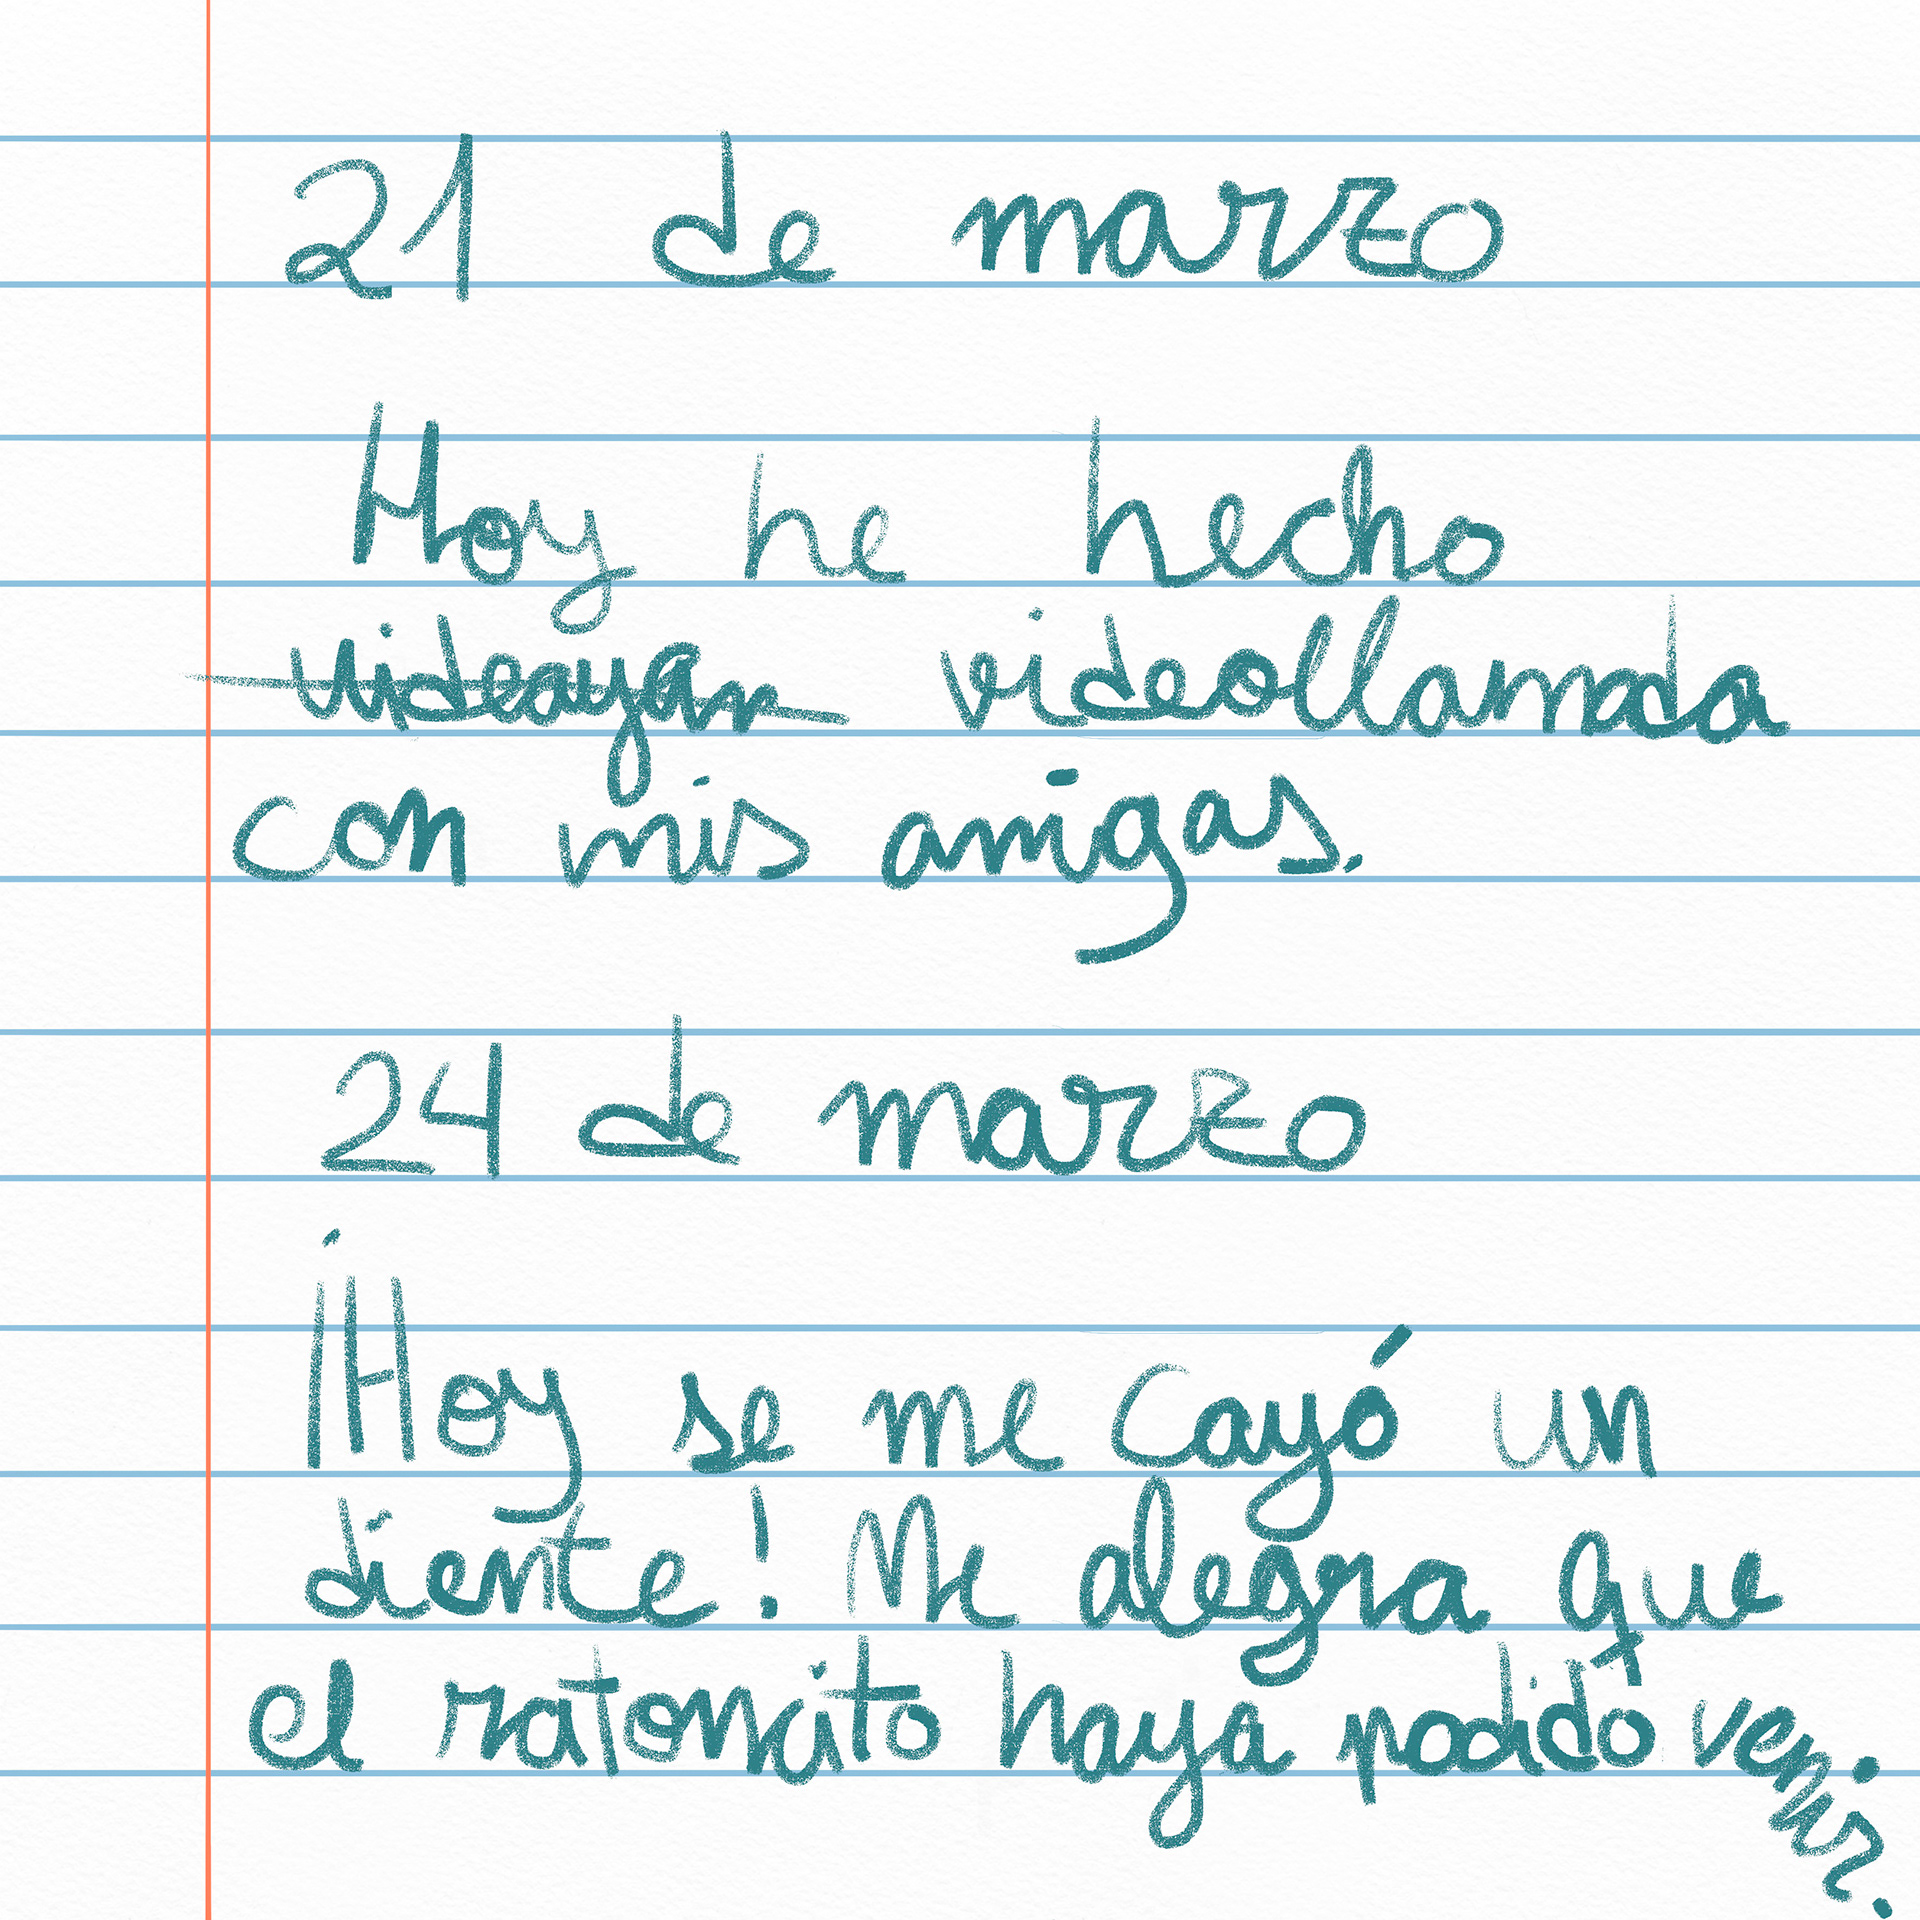 21 de marzo
Hoy he hecho
videollamada
con mis amigas.
24 de marzo
¡Hoy se me cayó un
diente! Me alegra que
el ratoncito haya podido venir.